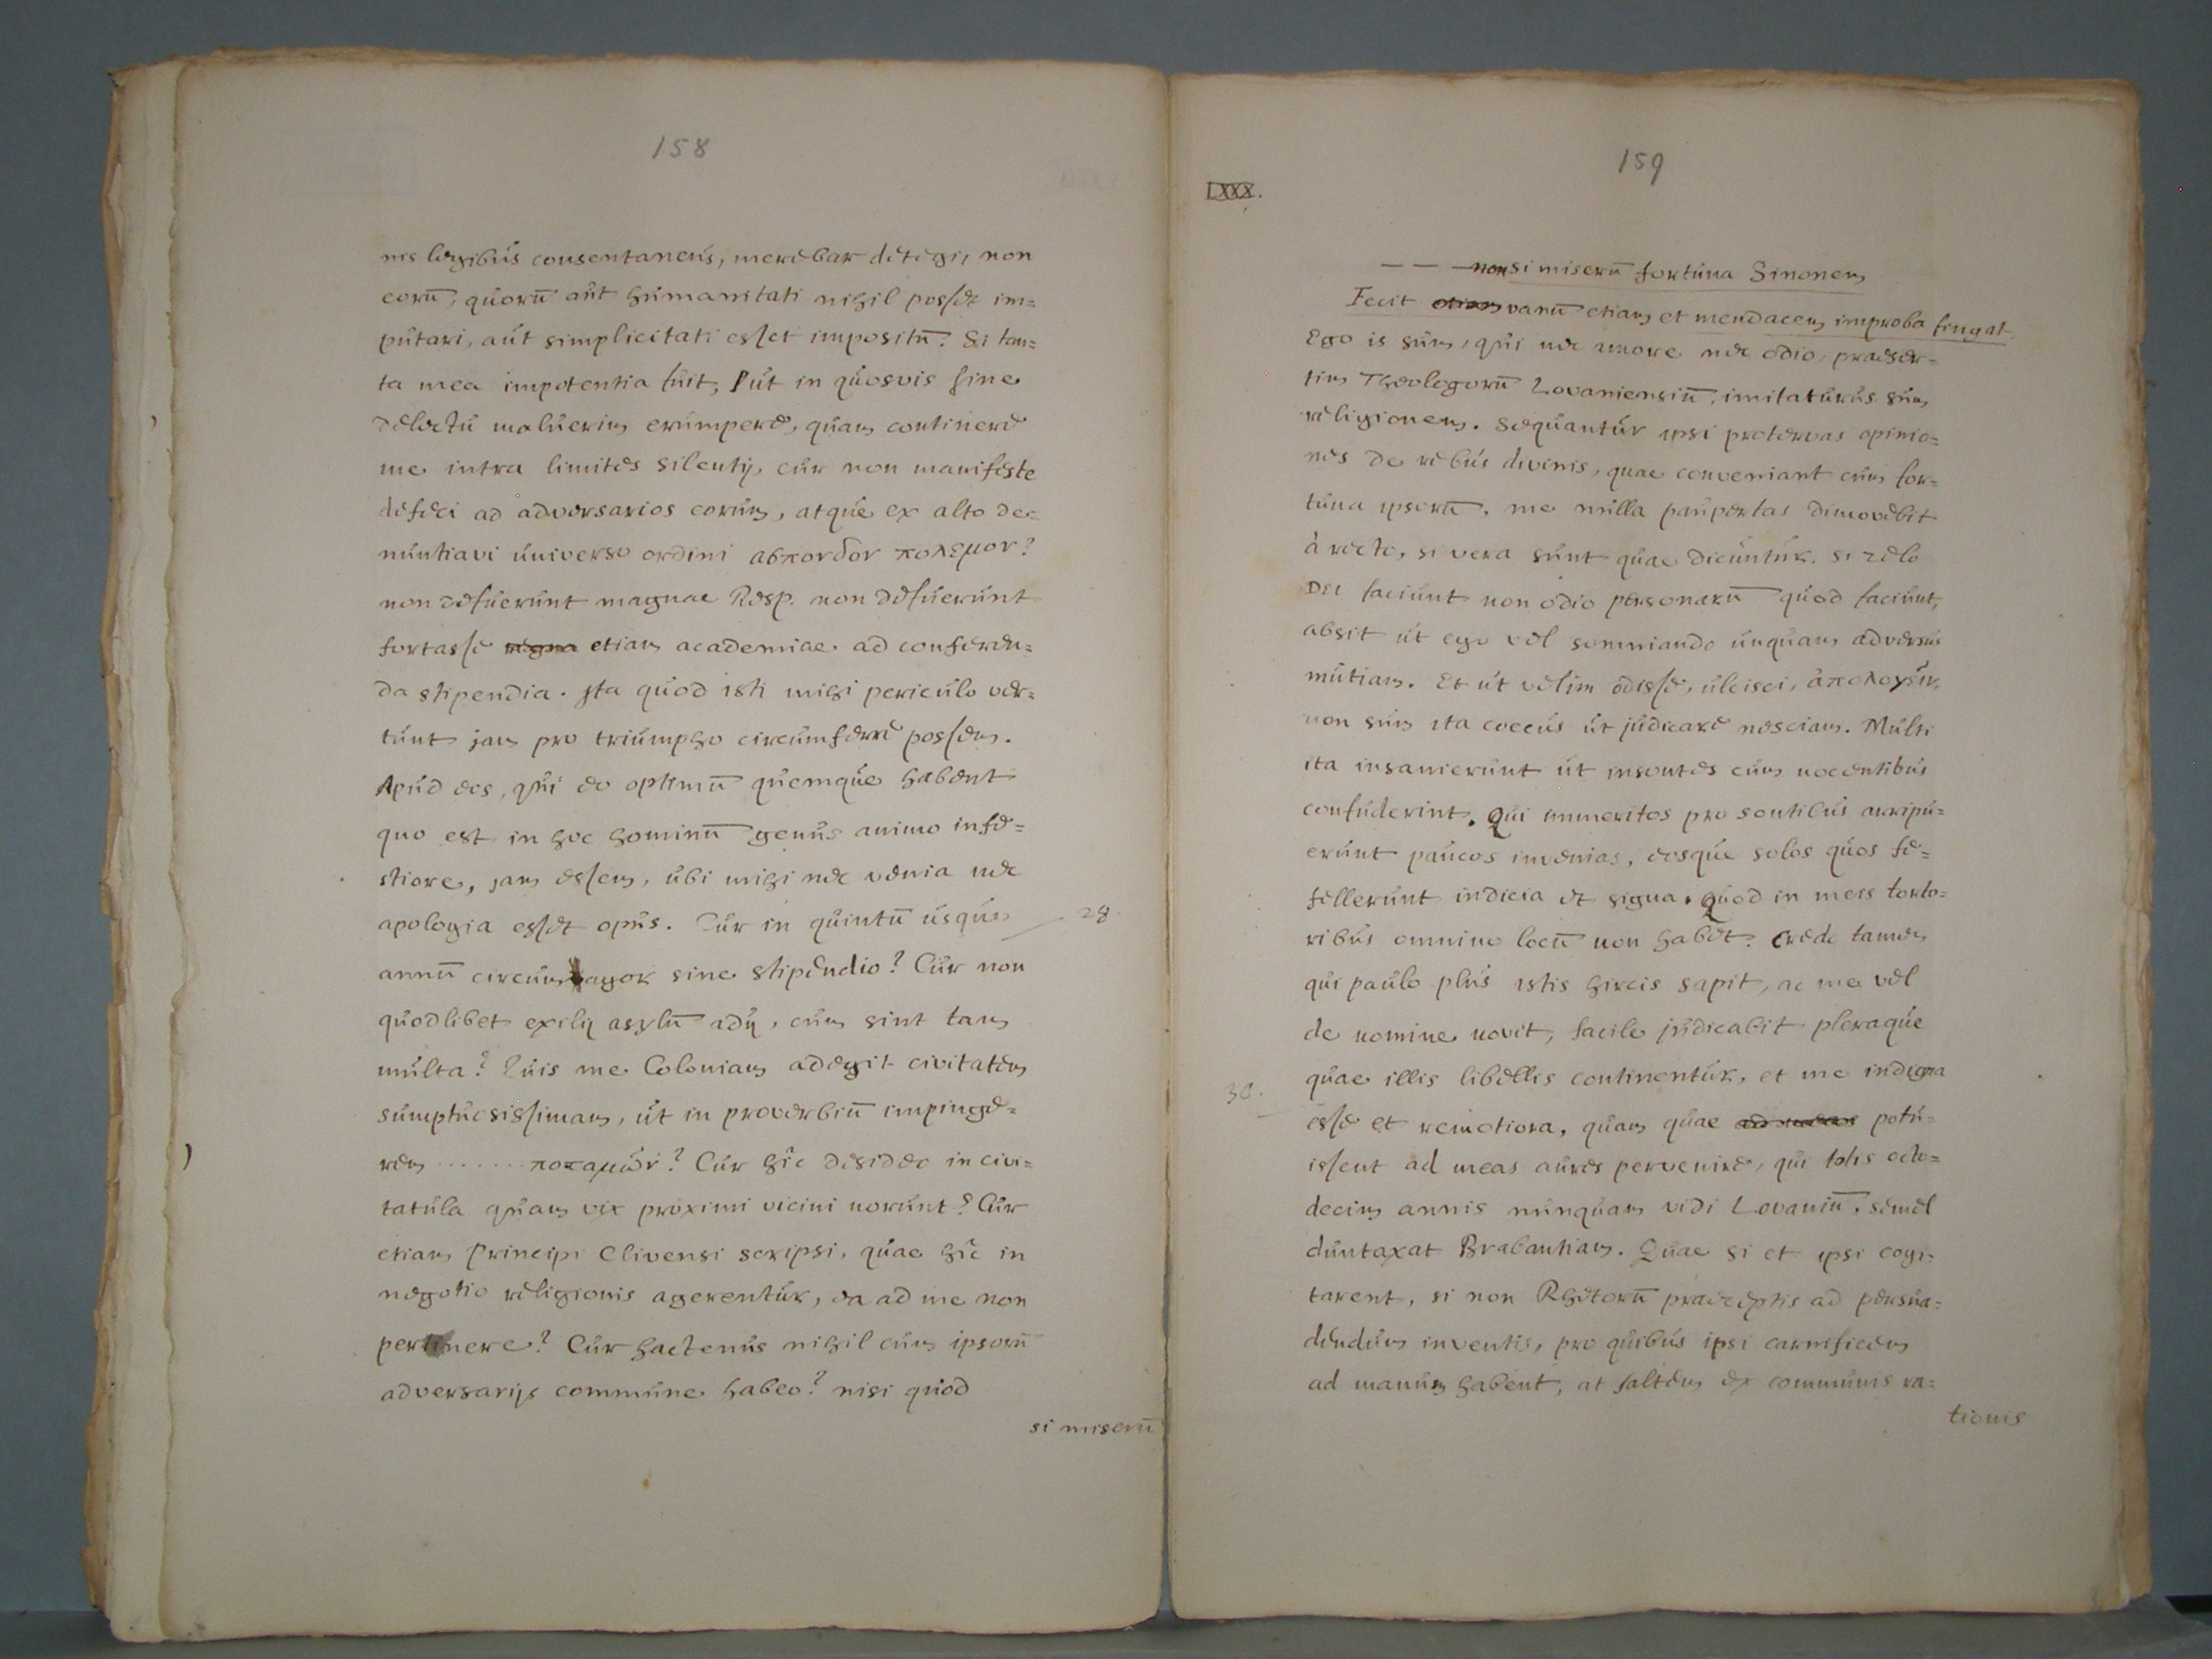 158
nis legibus consentaneus, merebar detegi, non
eorū, quorū aut humanitati nihil posset im=
putari, aut simplicitati esset impositū? Si tan=
ta mea impotentia fuit, ut in quosvis sine
delectu maluerim erumpere, quam continere
me intra limites silentij, cur non manifeste
defeci ad adversarios eorum, atque ex alto de=
nuntiavi universo ordini ασπονδον πολεμον?
non defuerunt magnae Resp. non defuerunt
fortasse regna etiam academiae ad conferen=
da stipendia. Ita quod isti mihi periculo ver=
tunt jam pro triumpho circumferre possem.
Apud eos, qui eo optimū quemque habent
quo est in hoc hominū genus animo infe=
stiore, jam essem, ubi mihi nec venia nec
apologia esset opus. Cur in quintū usque
28.
annū circumagor sine stipendio? Cur non
quodlibet exilij asylū adij, cum sint tam
multa? Quis me Coloniam adegit civitatem
sumptuosissimam, ut in proverbiū impinge=
rem ...... ποταμῶν? Cur hîc desideo in civi=
tatula quam vix proximi vicini norunt? Cur
etiam Principi Clivensi scripsi, quae hîc in
negotio religionis agerentur, ea ad me non
pertinere? Cur hactenus nihil cum ipsorū
adversarijs commune habeo? nisi quod
si miserū
159
LXXX.
— — — non si miserū fortuna Sinonem
Fecit etiam vanū etiam et mendacem improba finget.
Ego is sum, qui nec amore nec odio, praeser=
tim Theologorū Lovaniensiū, imitaturus sum
religionem. Sequantur ipsi protervas opinio=
nes de rebus divinis, quae conveniant cum for=
tuna ipsorū, me nulla paupertas dimovebit
à recto, si vera sunt quae dicuntur. Si zelo
Dei faciunt non odio personarū quod faciunt,
absit ut ego vel somniando unquam adversus
mutiam. Et ut velim odisse, ulcisci,
non sum ita coecus ut judicare nesciam. Multi
ita insanierunt ut insontes cum nocentibus
confuderint. Qui immeritos pro sontibus arripu=
erunt paucos invenias, eosque solos quos fe=
fellerunt indicia et signa. Quod in meis torto=
ribus omnino locū non habet. Credo tamen
qui paulo plus istis hircis sapit, ac me vel
de nomine novit, facile judicabit pleraque
quae illis libellis continentur, et me indigna
30.
esse et remotiora, quam quae potu=
issent ad meas aures pervenire, qui totis octo=
decim annis nunquam vidi Lovaniū, semel
duntaxat Brabantiam. Quae si et ipsi cogi=
tarent, si non Rhetorū praeceptis ad persua=
dendum inventis, pro quibus ipsi carnificem
ad manum habent, at saltem ex communis ra=
tionis